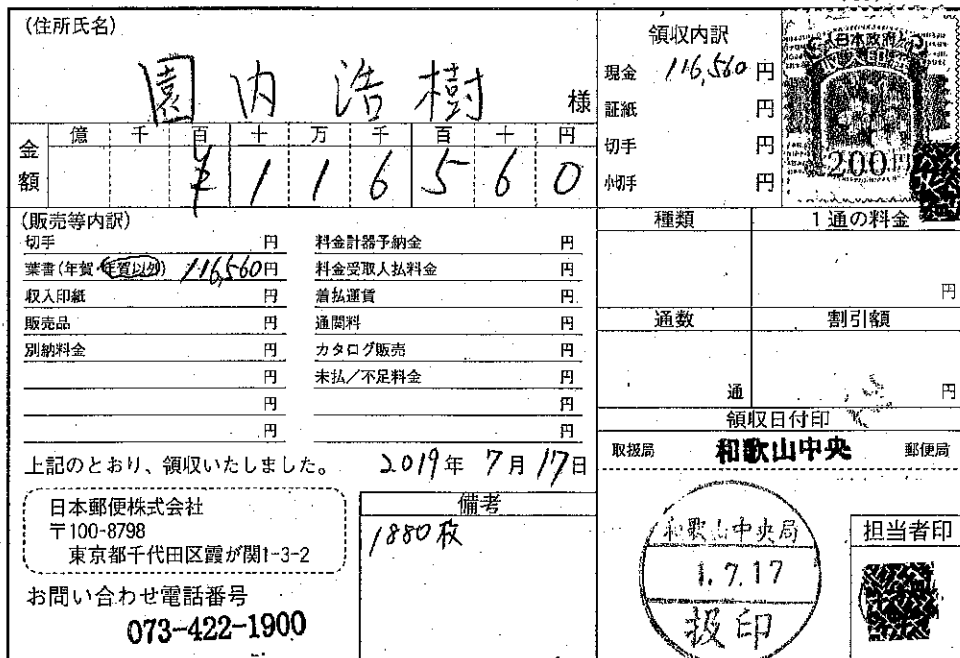 (住所氏名)
園内浩樹 様
金額 億 千 百 十 万 千 百 十 円
¥116560
領収内訳
現金 116,560 円
証紙 円
切手 円
小切手 円
日本政府
200円
(販売等内訳)
切手 円
葉書(年賀・年賀以外) 116,560円
収入印紙 円
販売品 円
別納料金 円
円
円
円
料金計器予納金 円
料金受取人払料金 円
着払運賃 円
通関料 円
カタログ販売 円
未払/不足料金 円
円
円
種類 1通の料金
円
通数 割引額
通 円
上記のとおり、領収いたしました。 2019年 7月 17日
領収日付印
取扱局 和歌山中央 郵便局
日本郵便株式会社
〒100-8798
東京都千代田区霞が関1-3-2
お問い合わせ電話番号
073-422-1900
備考
1880枚
和歌山中央局
1.7.17
扱印
担当者印